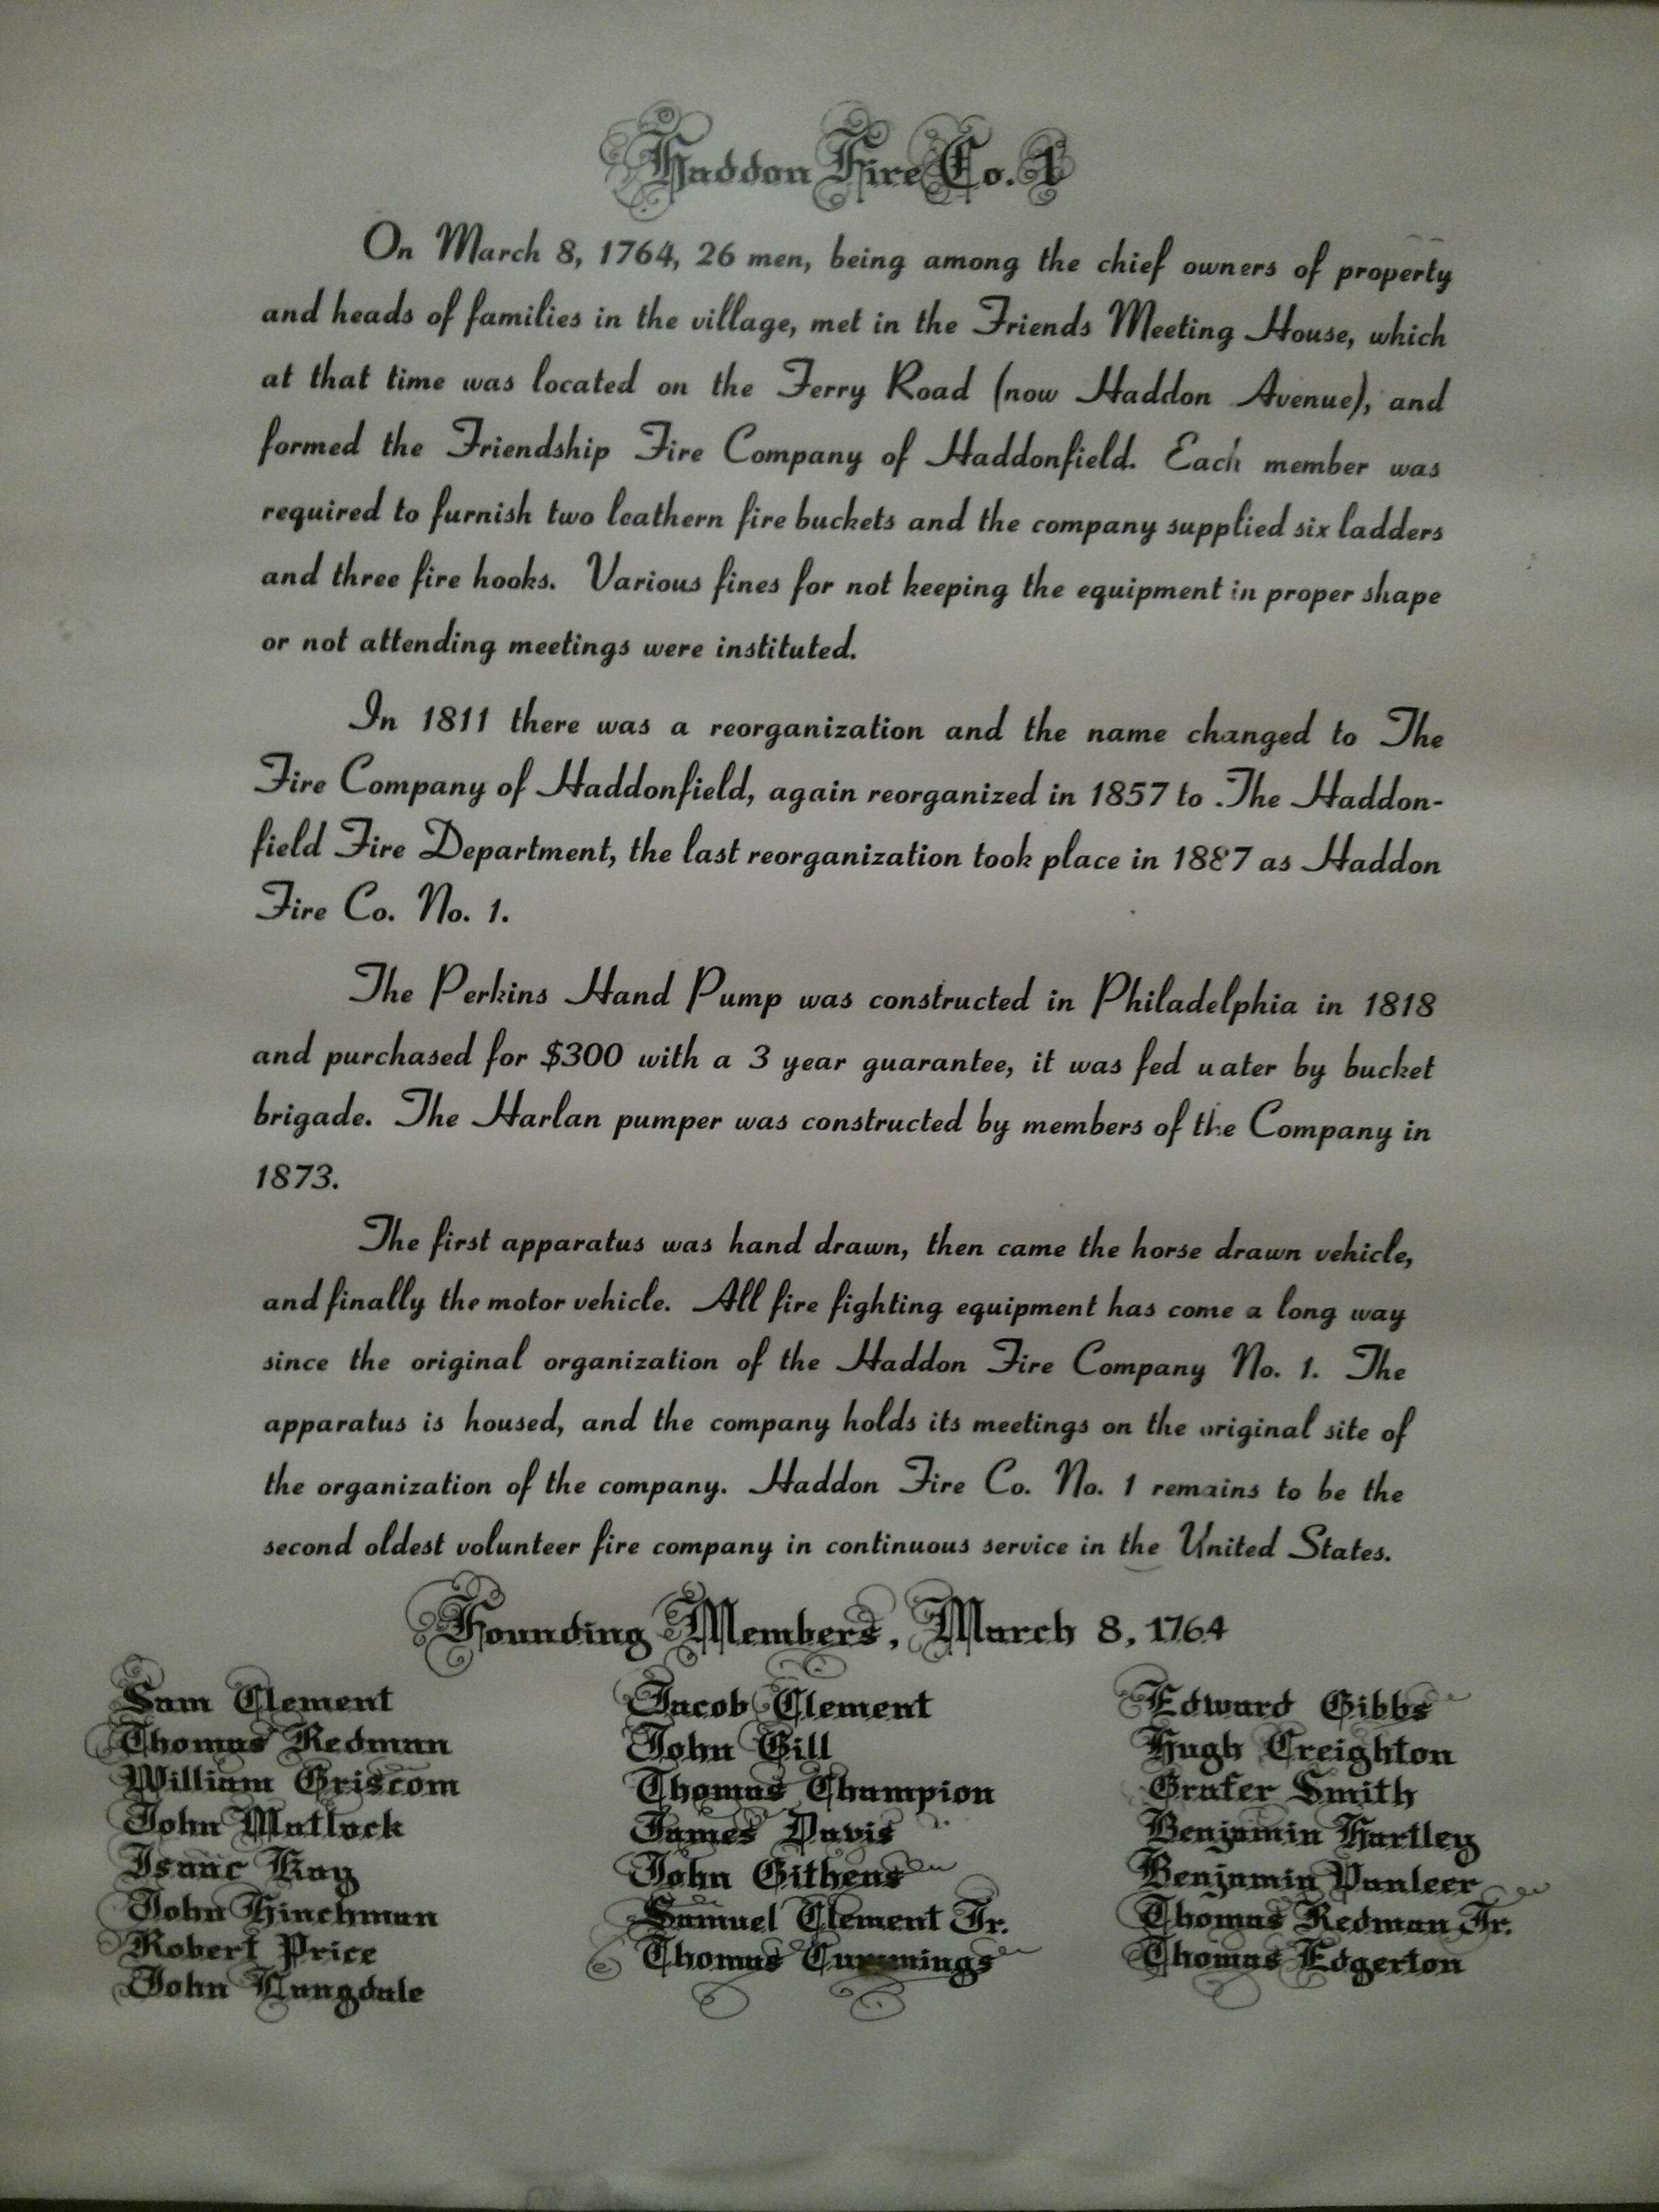 Haddon Fire Co. 1
On March 8, 1764, 26 men, being among the chief owners of property
and heads of families in the village, met in the Friends Meeting House, which
at that time was located on the Ferry Road (now Haddon Avenue), and
formed the Friendship Fire Company of Haddonfield. Each member was
required to furnish two leathern fire buckets and the company supplied six ladders
and three fire hooks. Various fines for not keeping the equipment in proper shape
or not attending meetings were instituted.
In 1811 there was a reorganization and the name changed to The
Fire Company of Haddonfield, again reorganized in 1857 to .The Haddon-
field Fire Department, the last reorganization took place in 1887 as Haddon
Fire Co. No. 1.
The Perkins Hand Pump was constructed in Philadelphia in 1818
and purchased for $300 with a 3 year guarantee, it was fed water by bucket
brigade. The Harlan pumper was constructed by members of the Company in
1873.
The first apparatus was hand drawn, then came the horse drawn vehicle,
and finally the motor vehicle. All fire fighting equipment has come a long way
since the original organization of the Haddon Fire Company No. 1. The
apparatus is housed, and the company holds its meetings on the original site of
the organization of the company. Haddon Fire Co. No. 1 remains to be the
second oldest volunteer fire company in continuous service in the United States.
Founding Members, March 8, 1764
Sam Clement
Thomas Redman
William Griscom
John Matlack
Isaac Kay
John Hinchman
Robert Price
John Langdale
Jacob Clement
John Gill
Thomas Champion
James Davis
John Githens
Samuel Clement Jr.
Thomas Cummings
Edward Gibbs
Hugh Creighton
Grafer Smith
Benjamin Hartley
Benjamin Vanleer
Thomas Redman Jr.
Thomas Edgerton